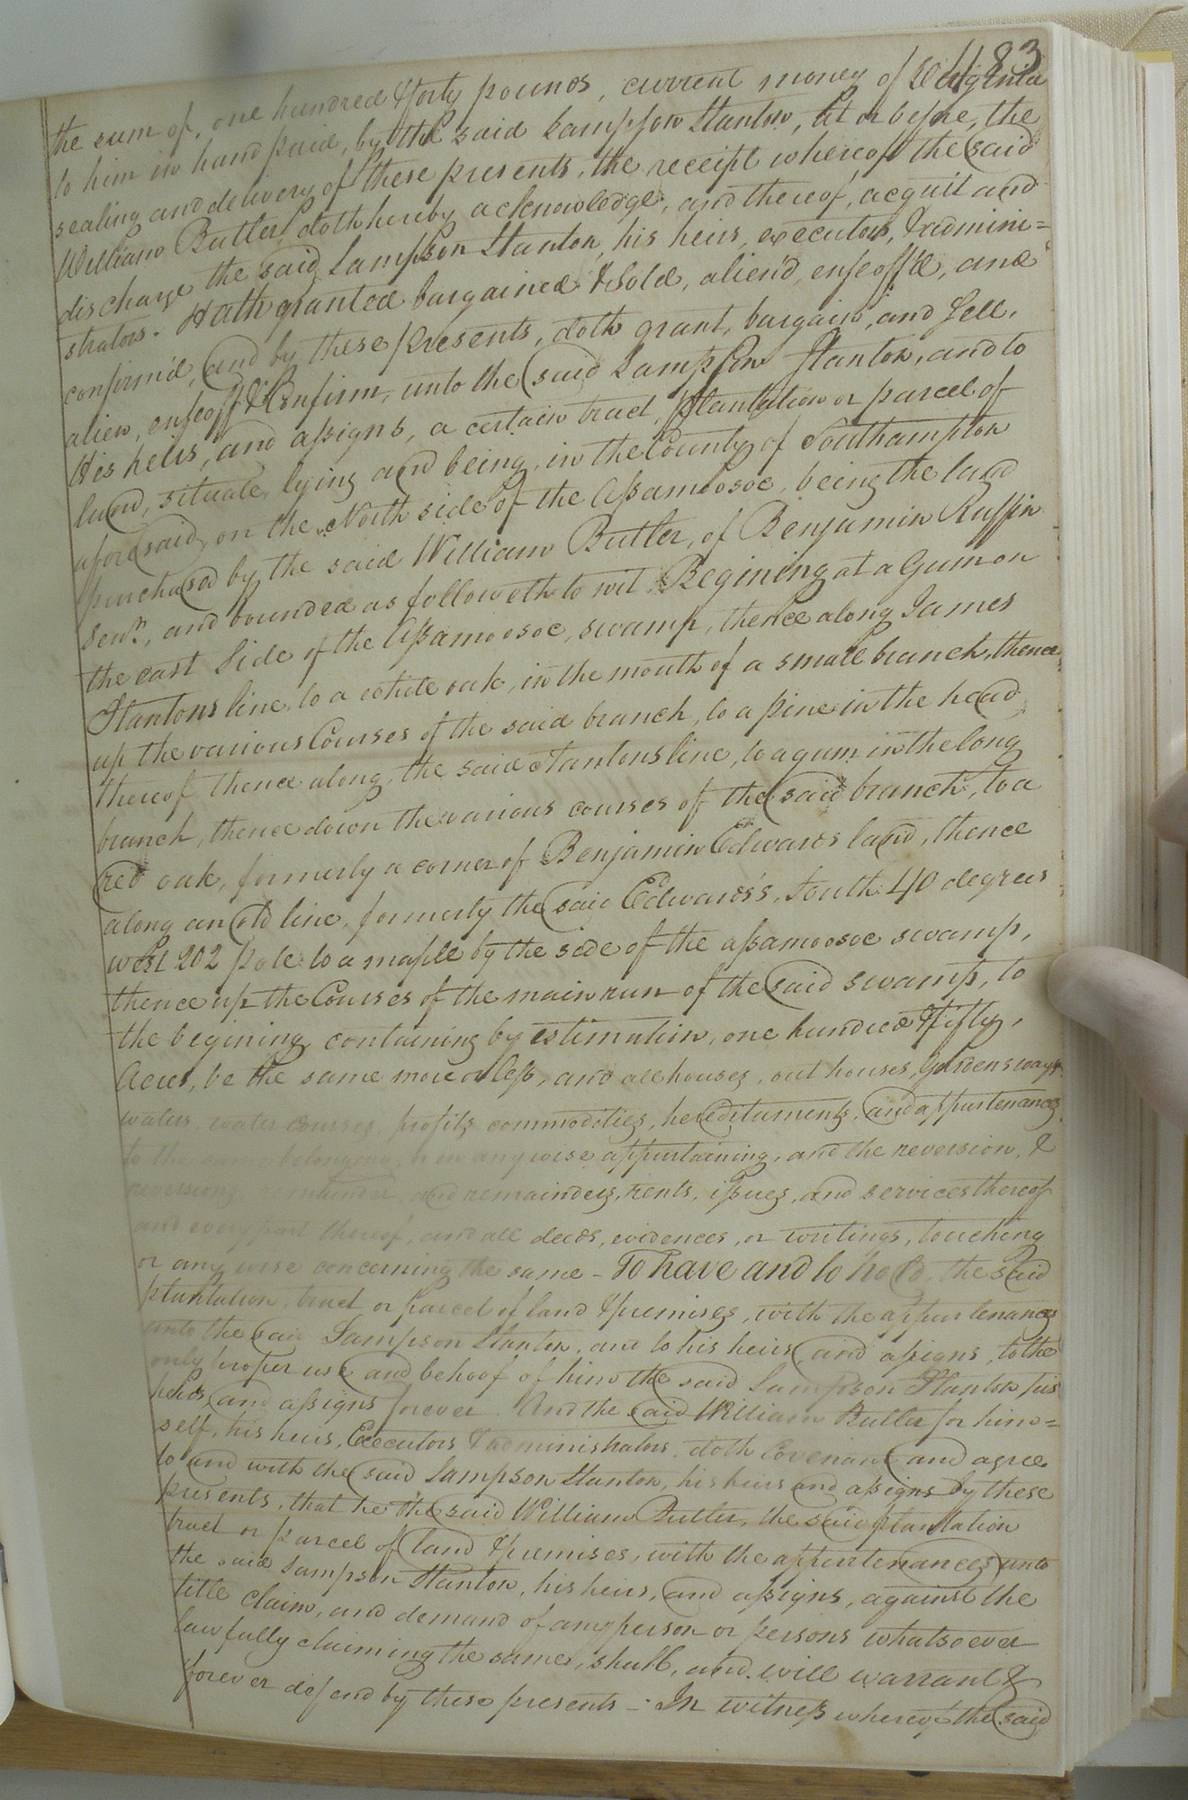 483
the sum of, one hundred & forty pounds, current money of Virginia
to him in hand paid, by the said Sampson Stanton, at or before, the
sealing and delivery of these presents, the receipt whereof the said
William Butler, doth hereby acknowledge, and thereof, acquit and
discharge the said Sampson Stanton, his heirs, executors, & admini=
strators. Hath granted bargained & sold, alien'd, enfeoff'd, and
confirm'd, and by these presents, doth grant, bargain, and sell,
alien, enfeoff & Confirm, unto the said Sampson Stanton, and to
His heirs, and assigns, a certain tract, plantation or parcel of
land, situate, lying and being, in the County of Southampton
aforesaid, on the North side of the Assamoosoc, being the land
purchased by the said William Butler, of Benjamin Ruffin
Senr., and bounded as followeth to wit, Begining at a Gum on
the east side of the Assamoosoc, swamp, thence along James
Stantons line, to a white oak, in the mouth of a small branch, thence
up the various Courses of the said branch, to a pine in the head
thereof thence along the said Stantons line, to a gum in the long
branch, thence down the various courses of the said branch, to a
red oak, formerly a corner of Benjamin Edwards land, thence
along an old line, formerly the said Edwards's, South 40 degrees
west 202 pole to a maple by the side of the assamoosoc swamp,
thence up the Courses of the main run of the said swamp, to
the begining, containing by estimation, one hundred & fifty,
Acres, be the same more or less, and all houses, out houses, Gardens ways
waters, water courses, profits commodities, hereditaments, and appurtenances
to the same belonging, or in any wise appurtaining, and the reversion, &
reversions, remainder and remainders, rents, issues, and services thereof
and every part thereof, and all deeds, evidences, or writings, touching
or any wise concerning the same - To have and to hold, the said
plantation, tract or parcel of land & premises, with the appurtenances
unto the said Sampson Stanton, and to his heirs, and assigns, to the
only proper use and behoof of him the said Sampson Stanton his
heirs and assigns forever. And the said William Butler for him=
self, his heirs, Executors & administrators, doth Covenant and agree
to and with the said Sampson Stanton, his heirs and assigns by these
presents, that he the said William Butler, the said plantation
tract or parcel of land & premises, with the appurtenances unto
the said Sampson Stanton, his heirs, and assigns, against the
title claim, and demand of any person or persons whatsoever
lawfully claiming the same, shall, and will warrant &
forever defend by these presents - In witness whereof the said